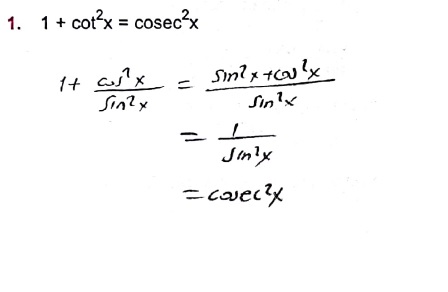 1. 1 + cot²x = cosec²x
1+ cos²x/sin²x = sin²x+cos²x/sin²x
= 1/sin²x
= cosec²x